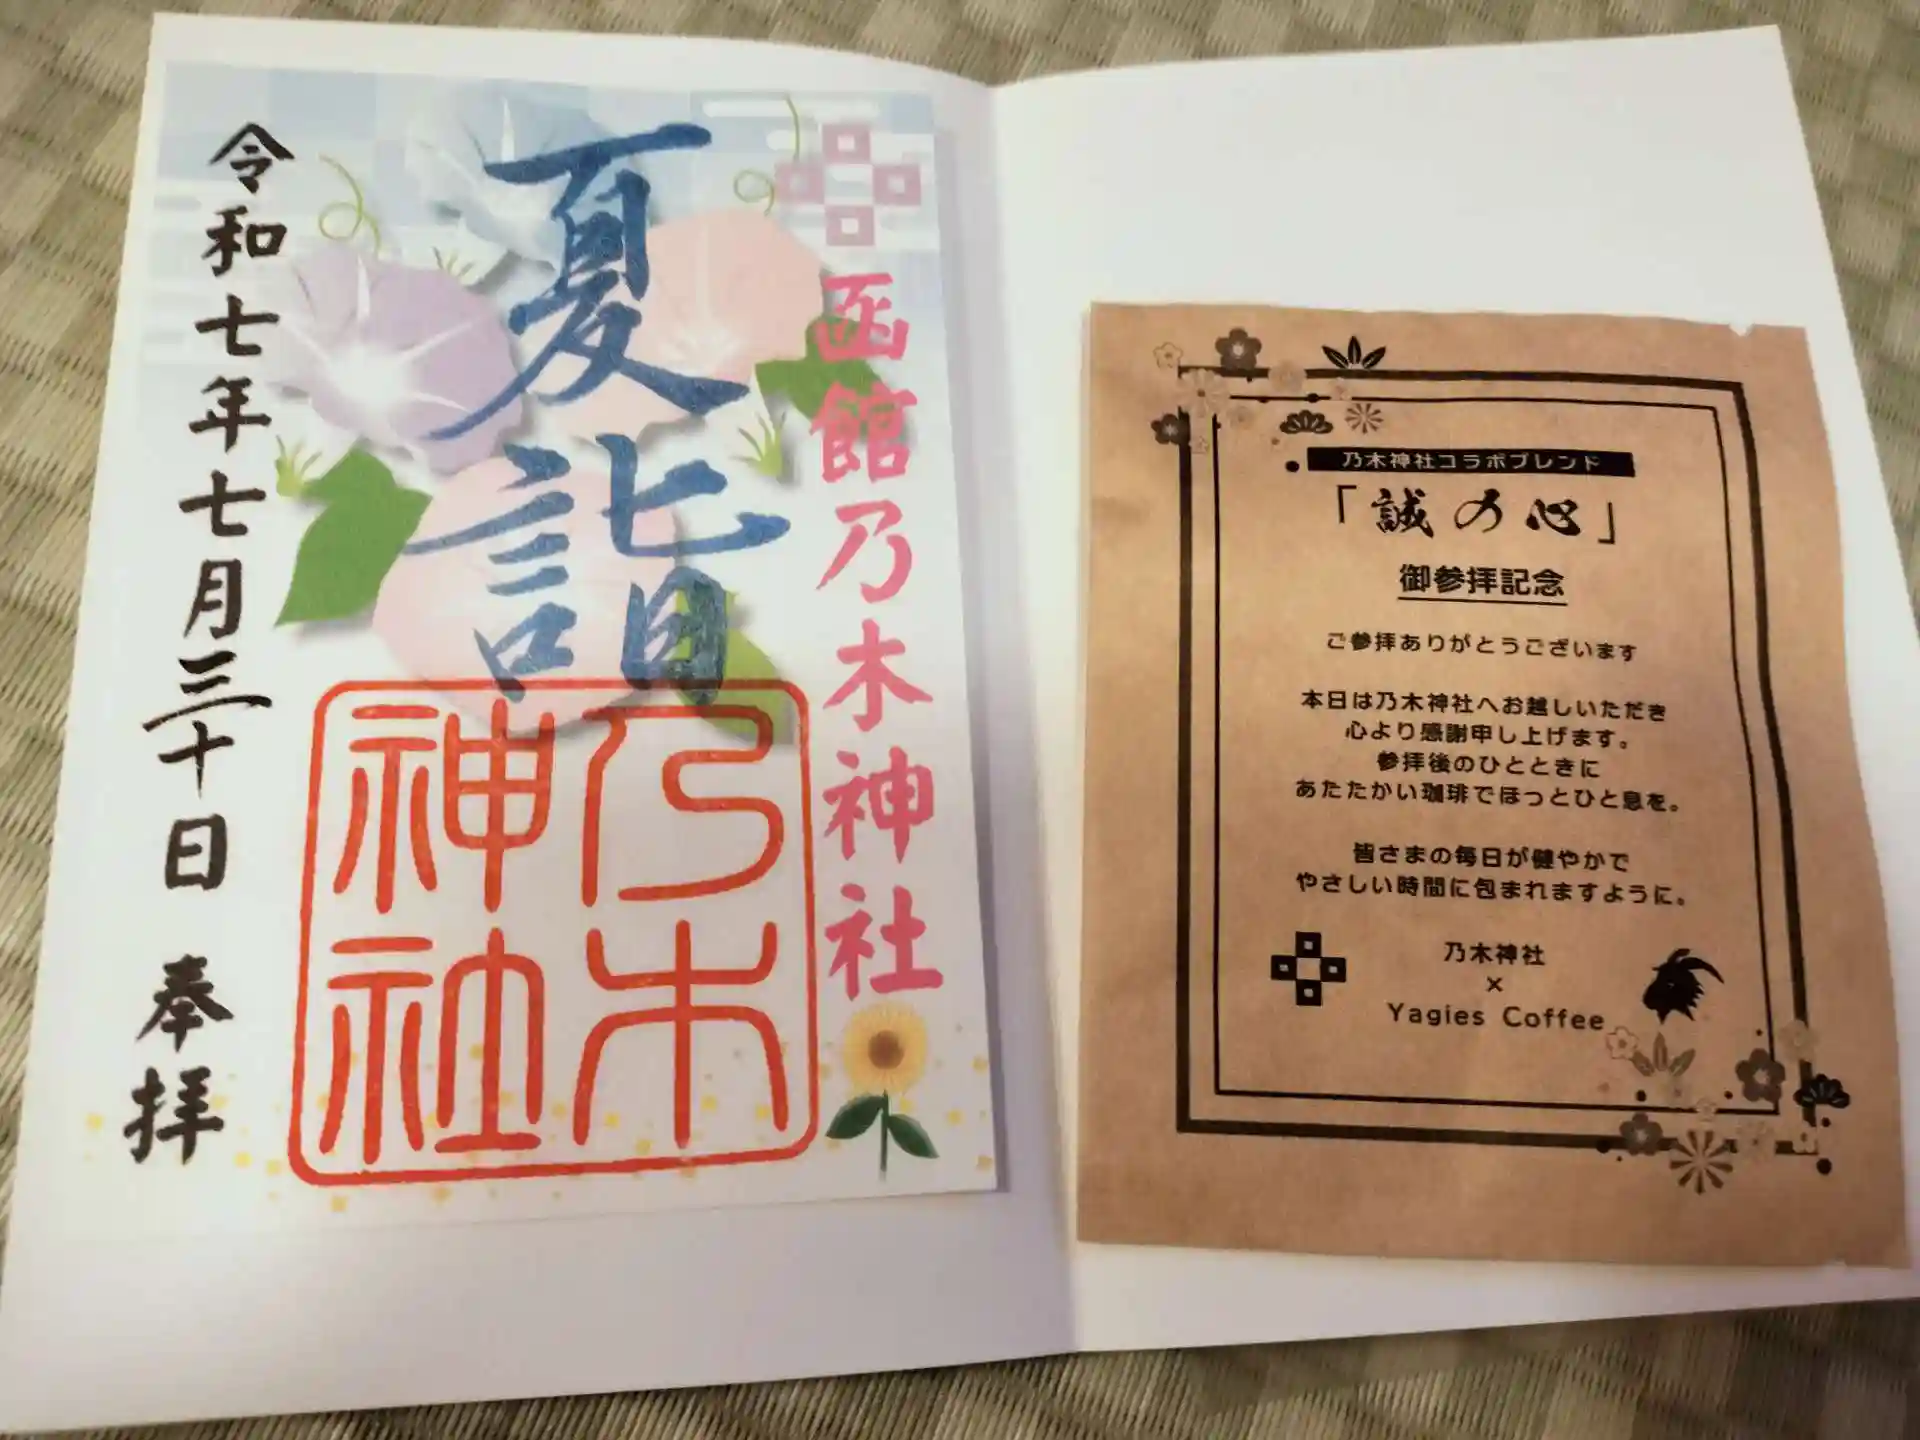 函館乃木神社
夏詣
乃木
神社
令和七年七月三十日 奉拝
乃木神社コラボブレンド
「誠の心」
御参拝記念
ご参拝ありがとうございます
本日は乃木神社へお越しいただき
心より感謝申し上げます。
参拝後のひとときに
あたたかい珈琲でほっとひと息を。
皆さまの毎日が健やかで
やさしい時間に包まれますように。
乃木神社
×
Yagies Coffee